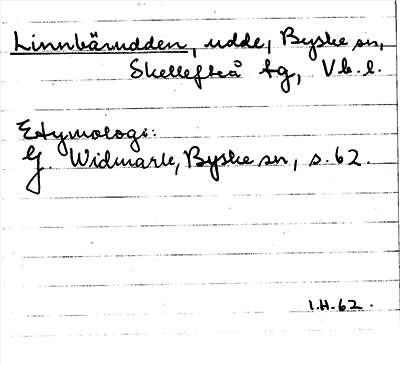 Linnbärudden, udde, Byske sn,
Skellefteå tg, Vb. l.
Etymologi:
G. Widmark, Byske sn, s. 62.
I.H. 62.